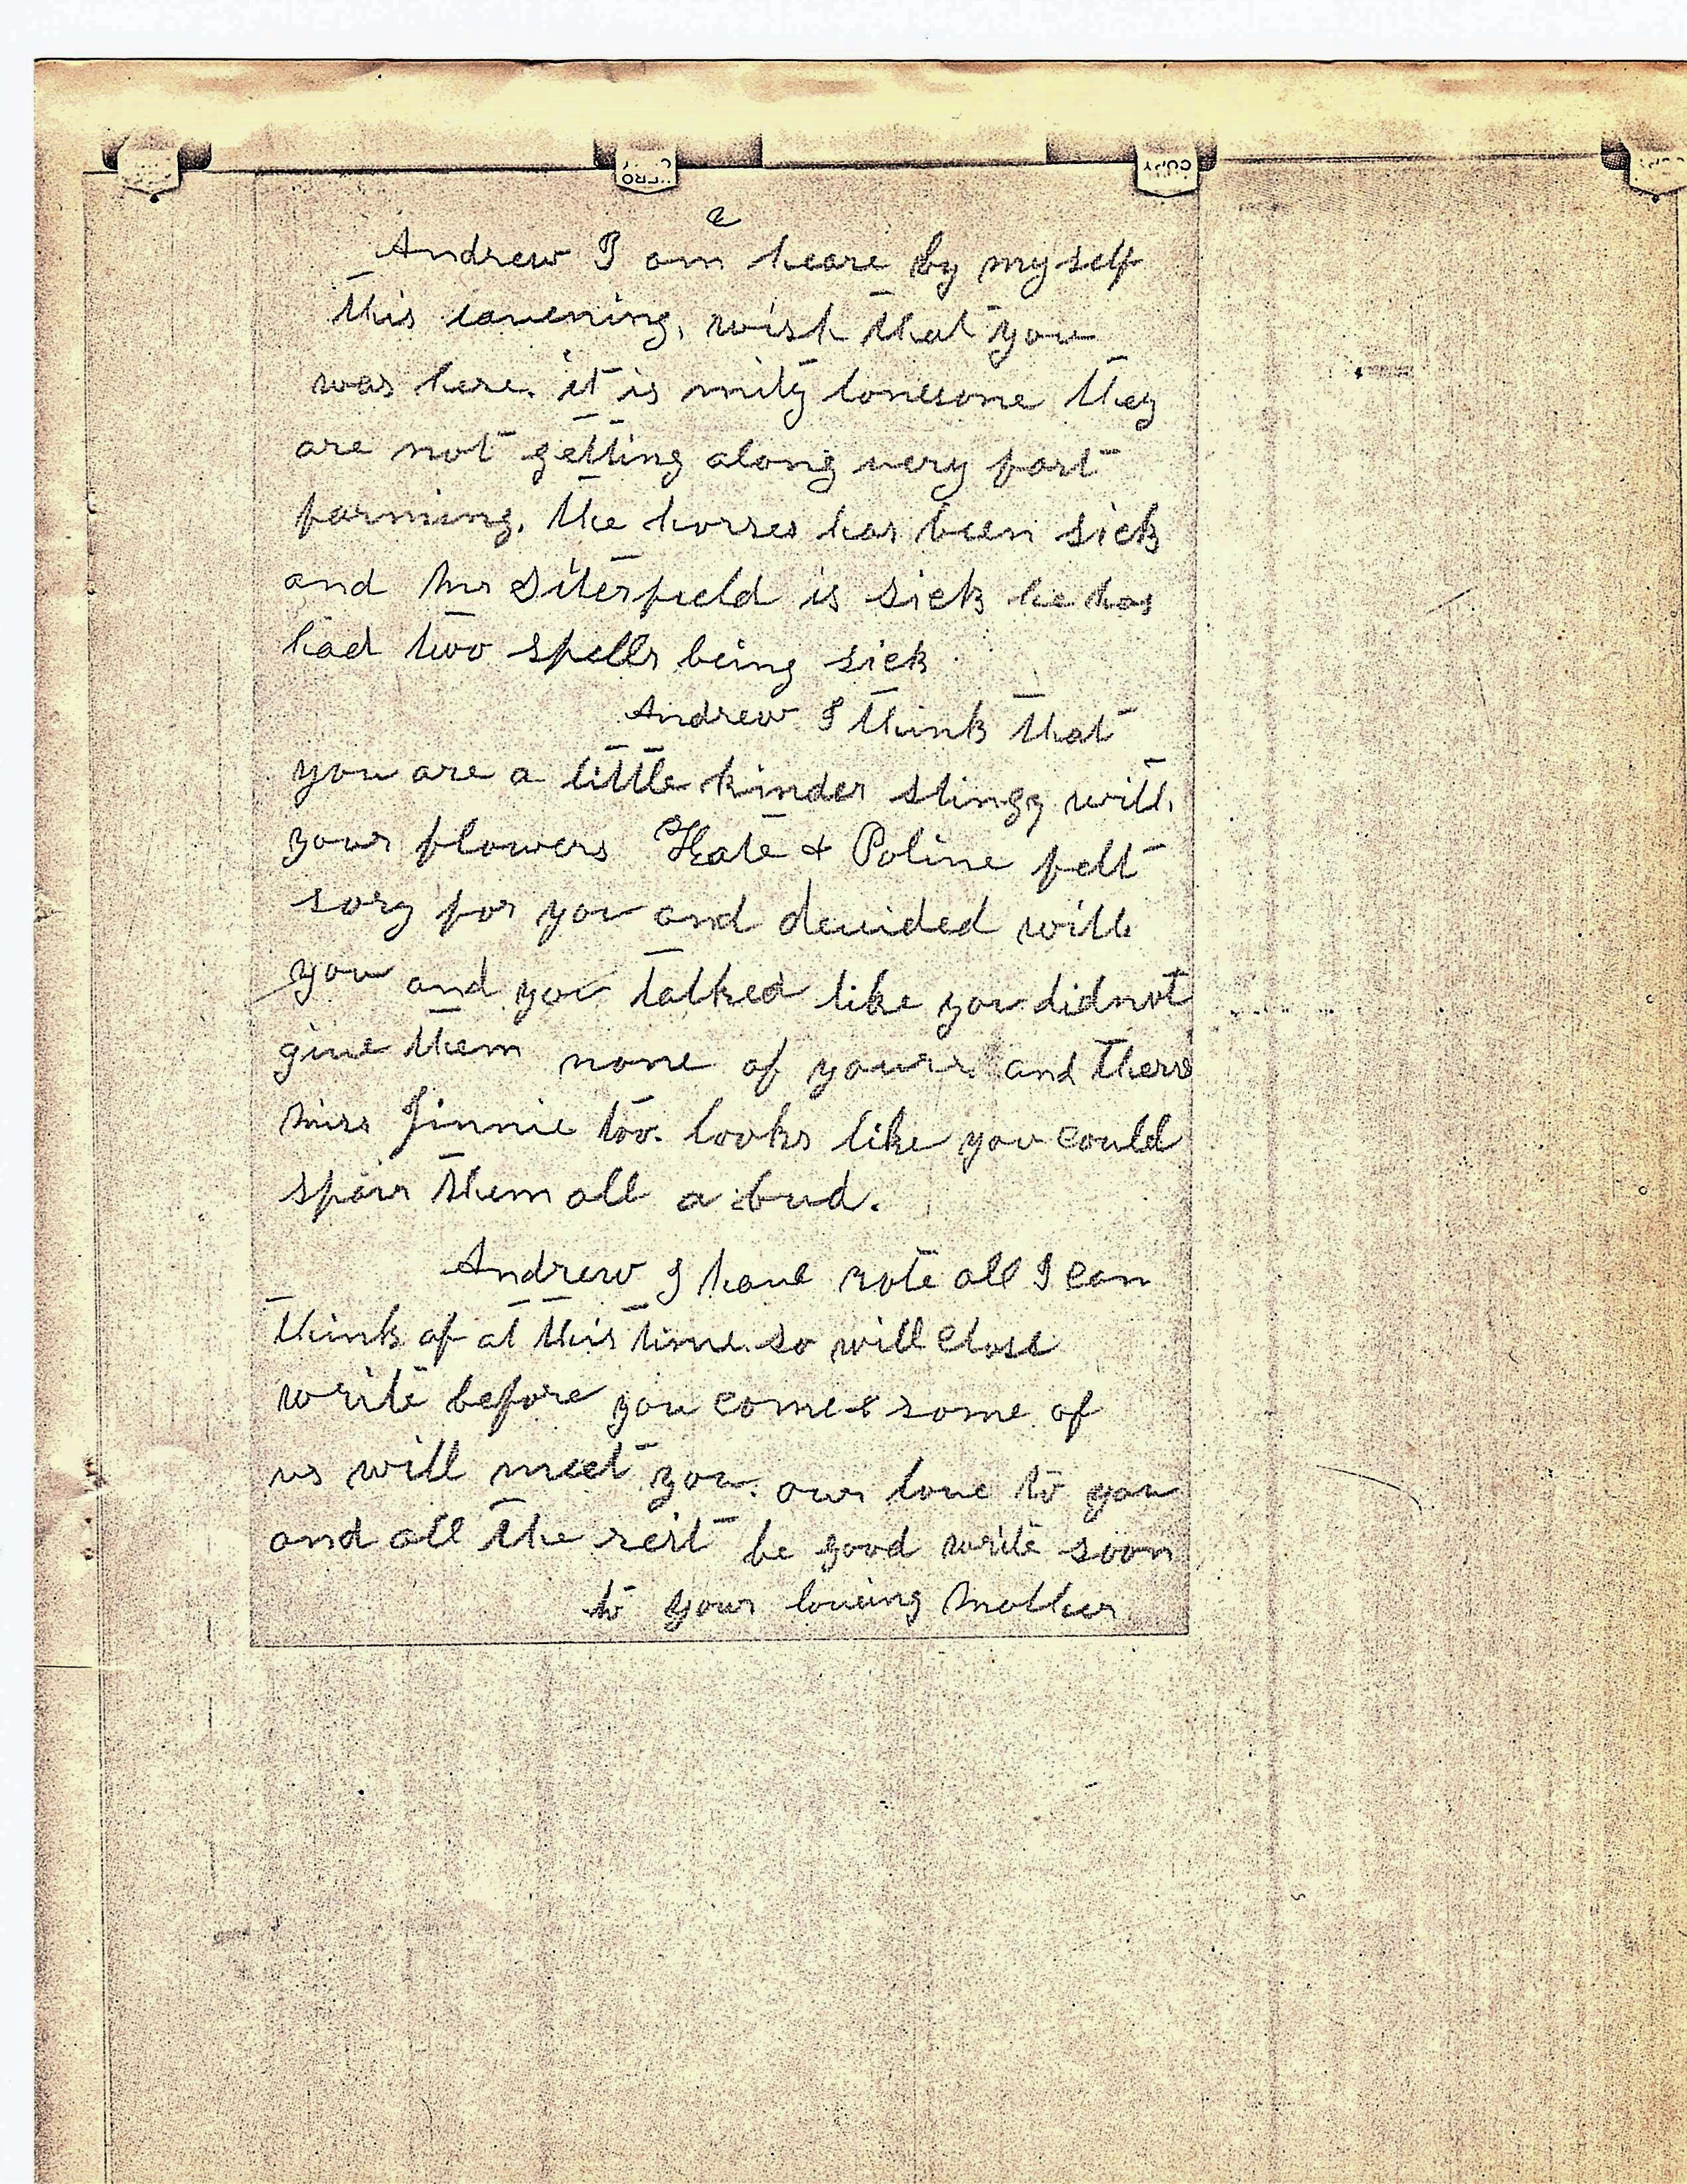 2
Andrew I am heare by my self
this eavening, wish that you
was here. it is mity lonesome they
are not getting along very fast
farming, the horses has been sick
and Mr Siterfield is sick he has
had two spells being sick
Andrew I think that
you are a little kinder stingy with
your flowers Kate & Poline felt
sory for you and devided with
you and you talked like you didnot
give them none of yours and there
Miss Jinnie too. looks like you could
spair them all a bud.
Andrew I have rote all I can
think of at this time. so will close
write before you come & some of
us will meet you. our love to you
and all the rest be good write soon
to your loveing Mother